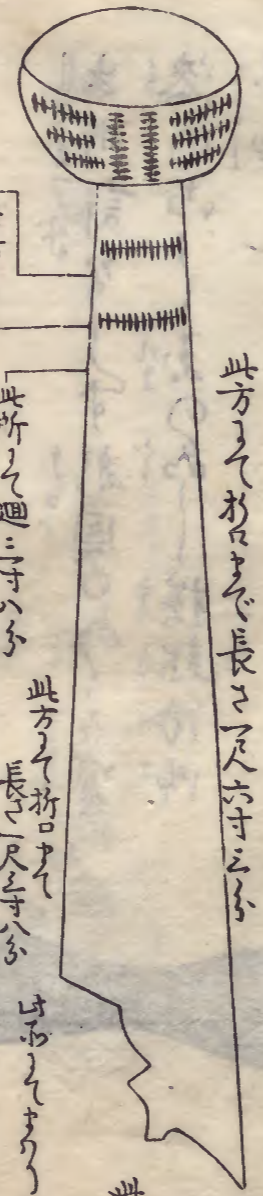 此方ニて折口まで長さ一尺六寸三分
此所ニて廻二寸八分
此方ニて折口まて
長さ一尺三寸八分